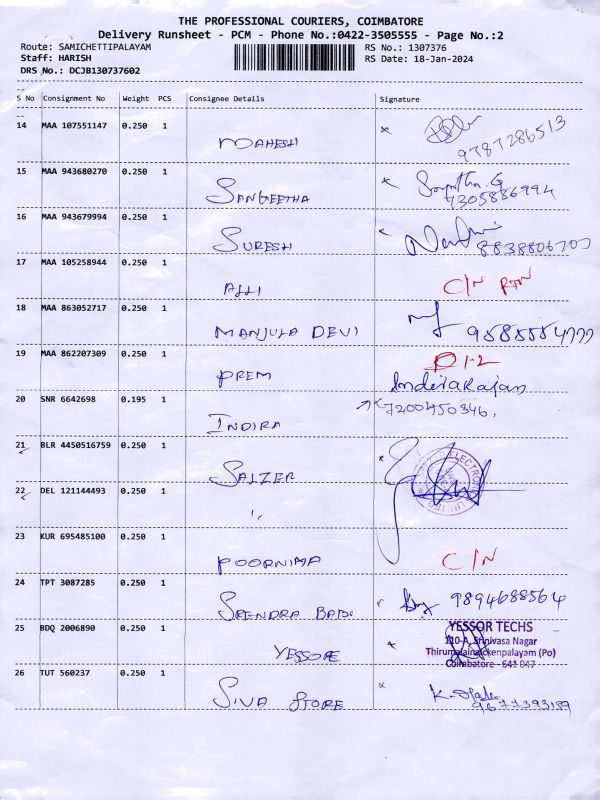 THE PROFESSIONAL COURIERS, COIMBATORE
Delivery Runsheet - PCM - Phone No.:0422-3505555 - Page No.:2
Route: SAMICHETTIPALAYAM RS No.: 1307376
Staff: HARISH RS Date: 18-Jan-2024
DRS No.: DCJB130737602
S No Consignment No Weight PCS Consignee Details Signature
14 MAA 107551147 0.250 1
MAHESH 9787286513
15 MAA 943680270 0.250 1
SANGEETHA 7305886994
16 MAA 943679994 0.250 1
SURESH
17 MAA 105258944 0.250 1
C/N RTN
18 MAA 863052717 0.250 1
MANJULA DEVI
19 MAA 862207309 0.250 1
PREM
Indirarajan
20 SNR 6642698 0.195 1
7200450346.
INDIRA
21 BLR 4450516759 0.250 1
SALZER
22 DEL 121144493 0.250 1
"
23 KUR 695485100 0.250 1
POORNIMA C/N
24 TPT 3087285 0.250 1
BABU 9894688564
25 BDQ 2006890 0.250 1
YESSOR TECHS
110-A, Srinivasa Nagar
YESSORE Thirumalainaickenpalayam (Po)
Coimbatore - 641 047
26 TUT 560237 0.250 1
SIVA STORE